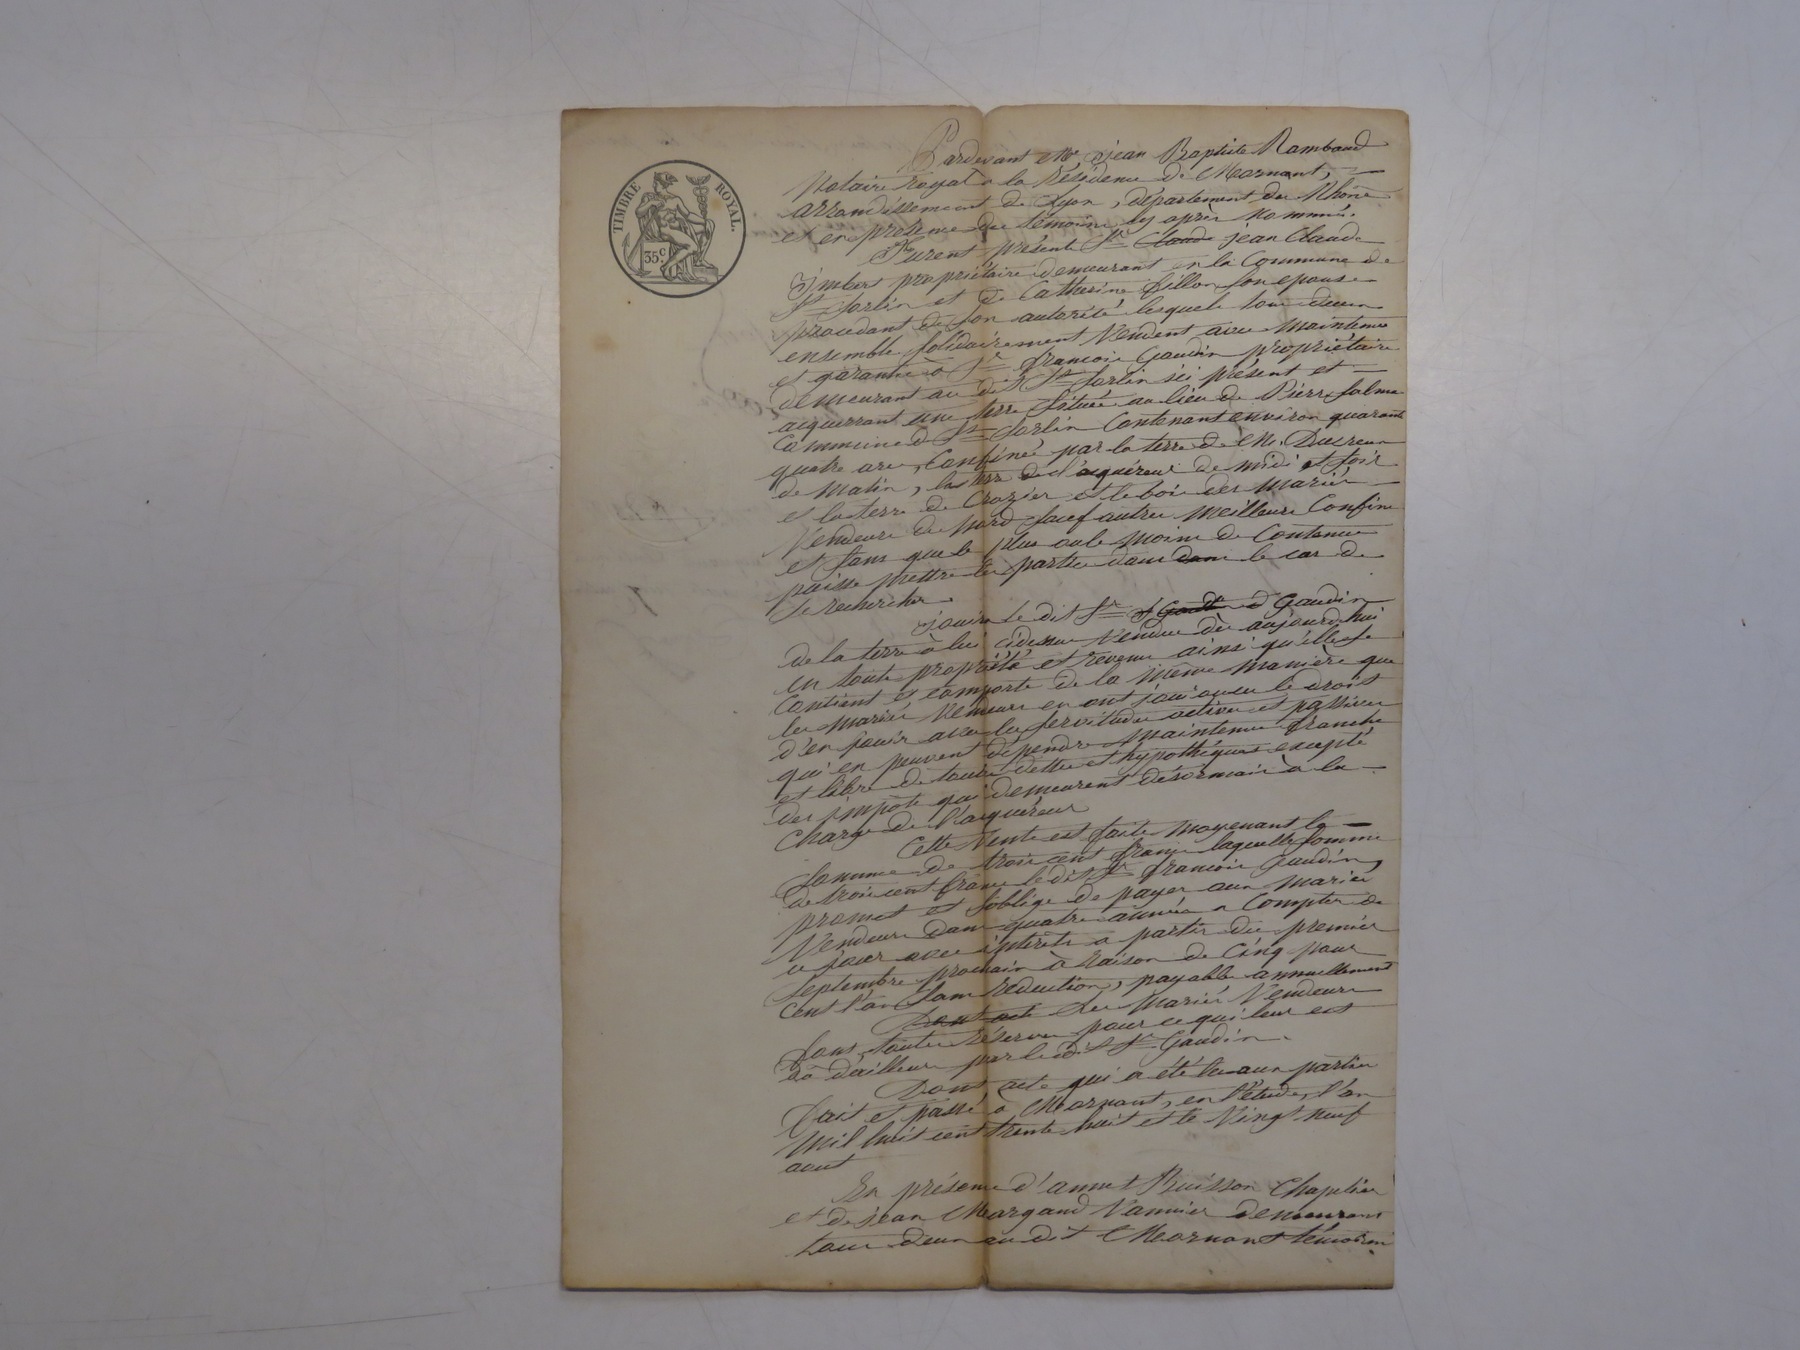 TIMBRE ROYAL.
35.c
Pardevant Me Jean Baptiste Rambaud
Notaire Royal a la Résidence de Mornant, —
arrondissement de Lyon, département du Rhône
et en presence des témoins cy après nommés.
Furent présents Sr Claude jean Claude
Imbert propriétaire demeurant en la Commune de
St Sorlin et de Catherine fillon son epouse
procedant de son autorité lesquels tous deux
ensemble solidairement Vendent avec maintenue
et garantie à Sr françois Gaudin propriétaire
demeurant au dit St Sorlin ici présent et —
acquerrant une terre située au lieu de Pierre Salme
Commune d St Sorlin Contenant environ quarante
quatre ares, Confinée par la terre de M. Ducreux
de matin, les terre de l'aquéreur de midi et soir
et la terre de Crozier et le bois des mariés —
Vendeurs du nord sauf autres meilleurs Confins
et sans que le plus ou le moins de Contenue
puisse mettre les parties dans dans le cas de
se rechercher.
Jouira le dit Sr d Gaudin
de la terre à lui cidessus Vendue dès aujourd'hui
en toute propriété et revenus ainsi qu'elle se
Contient et comporte de la même manière que
les mariés Vendeurs en ont joui ou eu le droit
d'en jouir avec les servitudes actives et passives
qui en peuvent dépendre maintenue franche
et libre de toutes dettes et hypothéques excepté
des impôts qui demeurent désormais à la —
Charge de l'acquéreur
Cette Vente est faite moyenant la —
somme de trois cent francs laquelle somme
de trois cent francs le dit Sr françois Gaudin,
promet et s'oblige de payer aux mariés
Vendeurs dans quatre années a Compter de
ce jour avec intérêts a partir du premier
septembre prochain à raison de Cinq pour
Cent l'an sans réduction, payable annuellement
Dont acte Les mariés Vendeurs
sous toutes réserves pour ce qui leur est
dû d'ailleurs par le dit Sr Gaudin.
Dont acte qui a été lu aux parties
Fait et passé à Mornant, en l'étude, l'an
Mil huit cent trente huit et le Vingt neuf
aout
En présence d'annet Buisson Chapelier
et de jean Margaud Vannier demeurant
tous deux au dit Mornant témoins